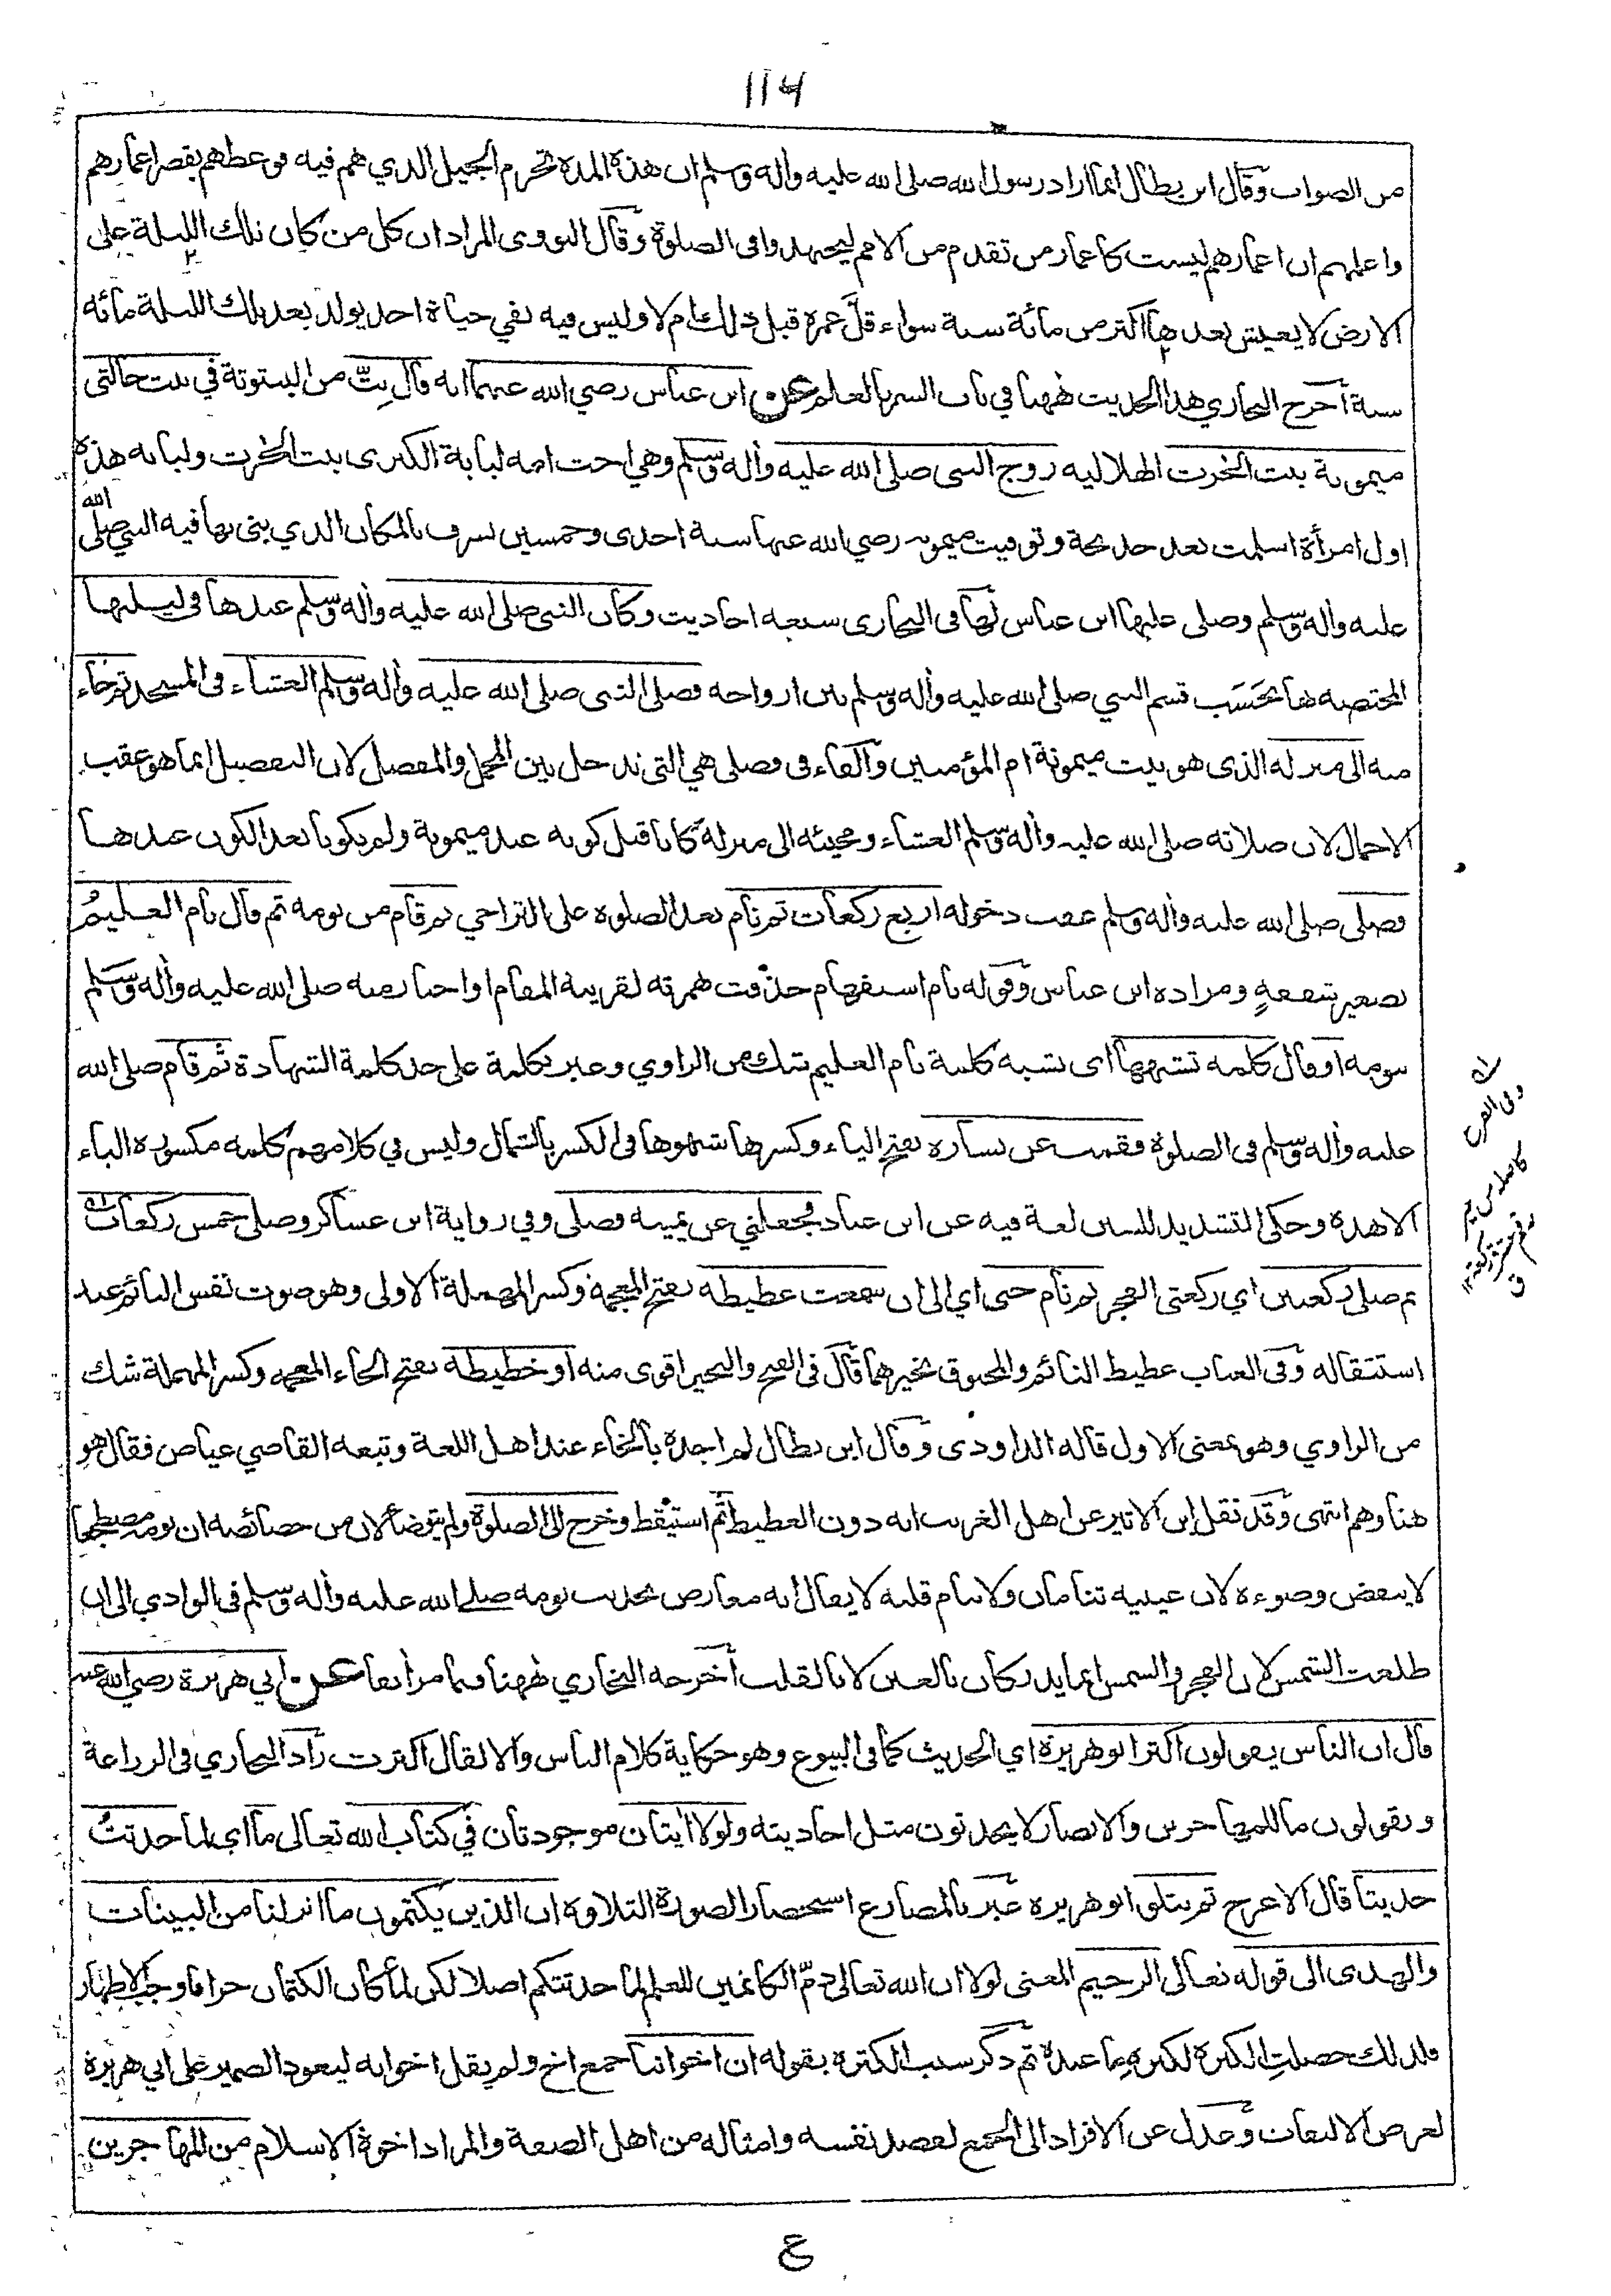 114
من الصواب وقال ابن بطال انما اراد رسول الله صلى الله عليه وأله وسلم ان هذه المدة تخرم الجيل الذي هم فيه فوعظهم بقصر اعمارهم
واعلمهم ان اعمارهم ليست كأعمار من تقدم من الامم ليجتهدوا في الصلوة وقال النووى المراد ان كل من كان تلك الليلة على
الارض لا يعيش بعدها اكثر من مائة سنة سواء قلَّ عمره قبل ذلك ام لا وليس فيه نفي حياة احد يولد بعد تلك الليلة مائه
سنة أخرج البخاري هذا الحديث ههنا في باب السمر بالعلم عن ابن عباس رضي الله عنهما انه قال بِتّ من البيتوتة في بيت خالتى
ميمونة بنت الحرث الهلاليه زوج النبى صلى الله عليه وأله وسلم وهي اخت امه لبابة الكبرى بنت الحرث ولبابه هذه
اول امرأة اسلمت بعد خديجة وتوفيت ميمونه رضي الله عنها سنة احدى وخمسين بسرف بالمكان الذي بنى بها فيه النبي صلى الله
عليه وأله وسلم وصلى عليها ابن عباس لها في البخارى سبعه احاديث وكان النبي صلى الله عليه وأله وسلم عندها في ليلتها
المختصه بها بحَسَب قسم النبي صلى الله عليه وأله وسلم بين ازواجه فصلى النبى صلى الله عليه وأله وسلم العشاء في المسجد ثم جاء
منه الى منزله الذى هو بيت ميمونة ام المؤمنين والفاء فى فصلى هي التى تدخل بين المجمل والمفصل لان التفصيل انما هو عقب
الاجمال لان صلاته صلى الله عليه وأله وسلم العشاء ومجيئه الى منزله كانا قبل كونه عند ميمونة ولم يكونا بعد الكون عندها
فصلى صلى الله عليه وأله وسلم عقب دخوله اربع ركعات ثم نام بعد الصلوة على التراخي ثم قام من نومه ثم قال نام الغليمُ
تصغير شفقةٍ ومراده ابن عباس وقوله نام استفهام حذفت همزته لقرينة المقام او اخبار منه صلى الله عليه وأله وسلم
بنومه او قال كلمه تشبهها اى تشبه كلمة نام الغليم شك من الراوي وعبر بكلمة على حد كلمة الشهادة ثم قام صلى الله
عليه وأله وسلم فى الصلوة فقمت عن يساره بفتح الياء وكسرها شبهوها في الكسر بالشمال وليس في كلامهم كلمه مكسورة الياء
الا هذه وحكى التشديد للسين لغة فيه عن ابن عباد فجعلني عن يمينه فصلى وفي رواية ابن عساكر وصلى خمس ركعات
ثم صلى ركعتين اي ركعتى الفجر ثم نام حتى اي الى ان سمعت غطيطه بفتح المعجمة وكسر المهملة الاولى وهو صوت نفس النائم عند
استثقاله وفى العباب غطيط النائم والمخنوق نخيرهما قال فى الفتح والنخير اقوى منه او خطيطه بفتح الخاء المعجمه وكسر المهملة شك
من الراوي وهو بمعنى الاول قاله الداودى وقال ابن بطال لم اجده بالخاء عند اهل اللغة وتبعه القاضي عياض فقال هو
هنا وهم انتهى وقد نقل ابن الاثير عن اهل الغريب انه دون الغطيط ثم استيقظ وخرج الى الصلوة ولم يتوضأ لان من خصائصه ان نومه مضطجعا
لا ينقض وضوءه لان عينيه تنامان ولا ينام قلبه لا يقال انه معارض بحديث نومه صلى الله عليه وأله وسلم فى الوادي الى ان
طلعت الشمس لان الفجر والشمس انما يدركان بالعين لا بالقلب أخرجه البخاري ههنا وما مر أنفا عن ابي هريرة رضي الله عنه
قال ان الناس يقولون اكثر ابو هريرة اي الحديث كما فى البيوع وهو حكاية كلام الناس والا لقال اكثرت زاد البخاري فى الزراعة
ويقولون ما للمهاجرين والانصار لا يحدثون مثل احاديثه ولولا أيتان موجودتان في كتاب الله تعالى ما اى لما حدثتُ
حديثا قال الاعرج ثم يتلو ابو هريره عبر بالمضارع استحضارا لصورة التلاوة ان الذين يكتمون ما انزلنا من البينات
والهدى الى قوله تعالى الرحيم المعنى لولا ان الله تعالى ذمّ الكاتمين للعلم لما حدثتكم اصلا لكن لما كان الكتمان حراما وجب الاظهار
فلذلك حصلت الكثرة لكثرة ما عنده ثم ذكر سبب الكثرة بقوله ان اخواننا جمع اخ ولم يقل اخوانه ليعود الضمير على ابي هريرة
لغرض الالتفات وعدل عن الافراد الى الجمع لقصد نفسه وامثاله من اهل الصفة والمراد اخوة الاسلام من المهاجرين
ع